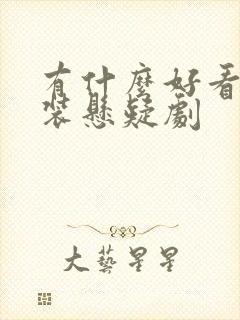 有什麼好看
裝懸疑劇
大藝星星